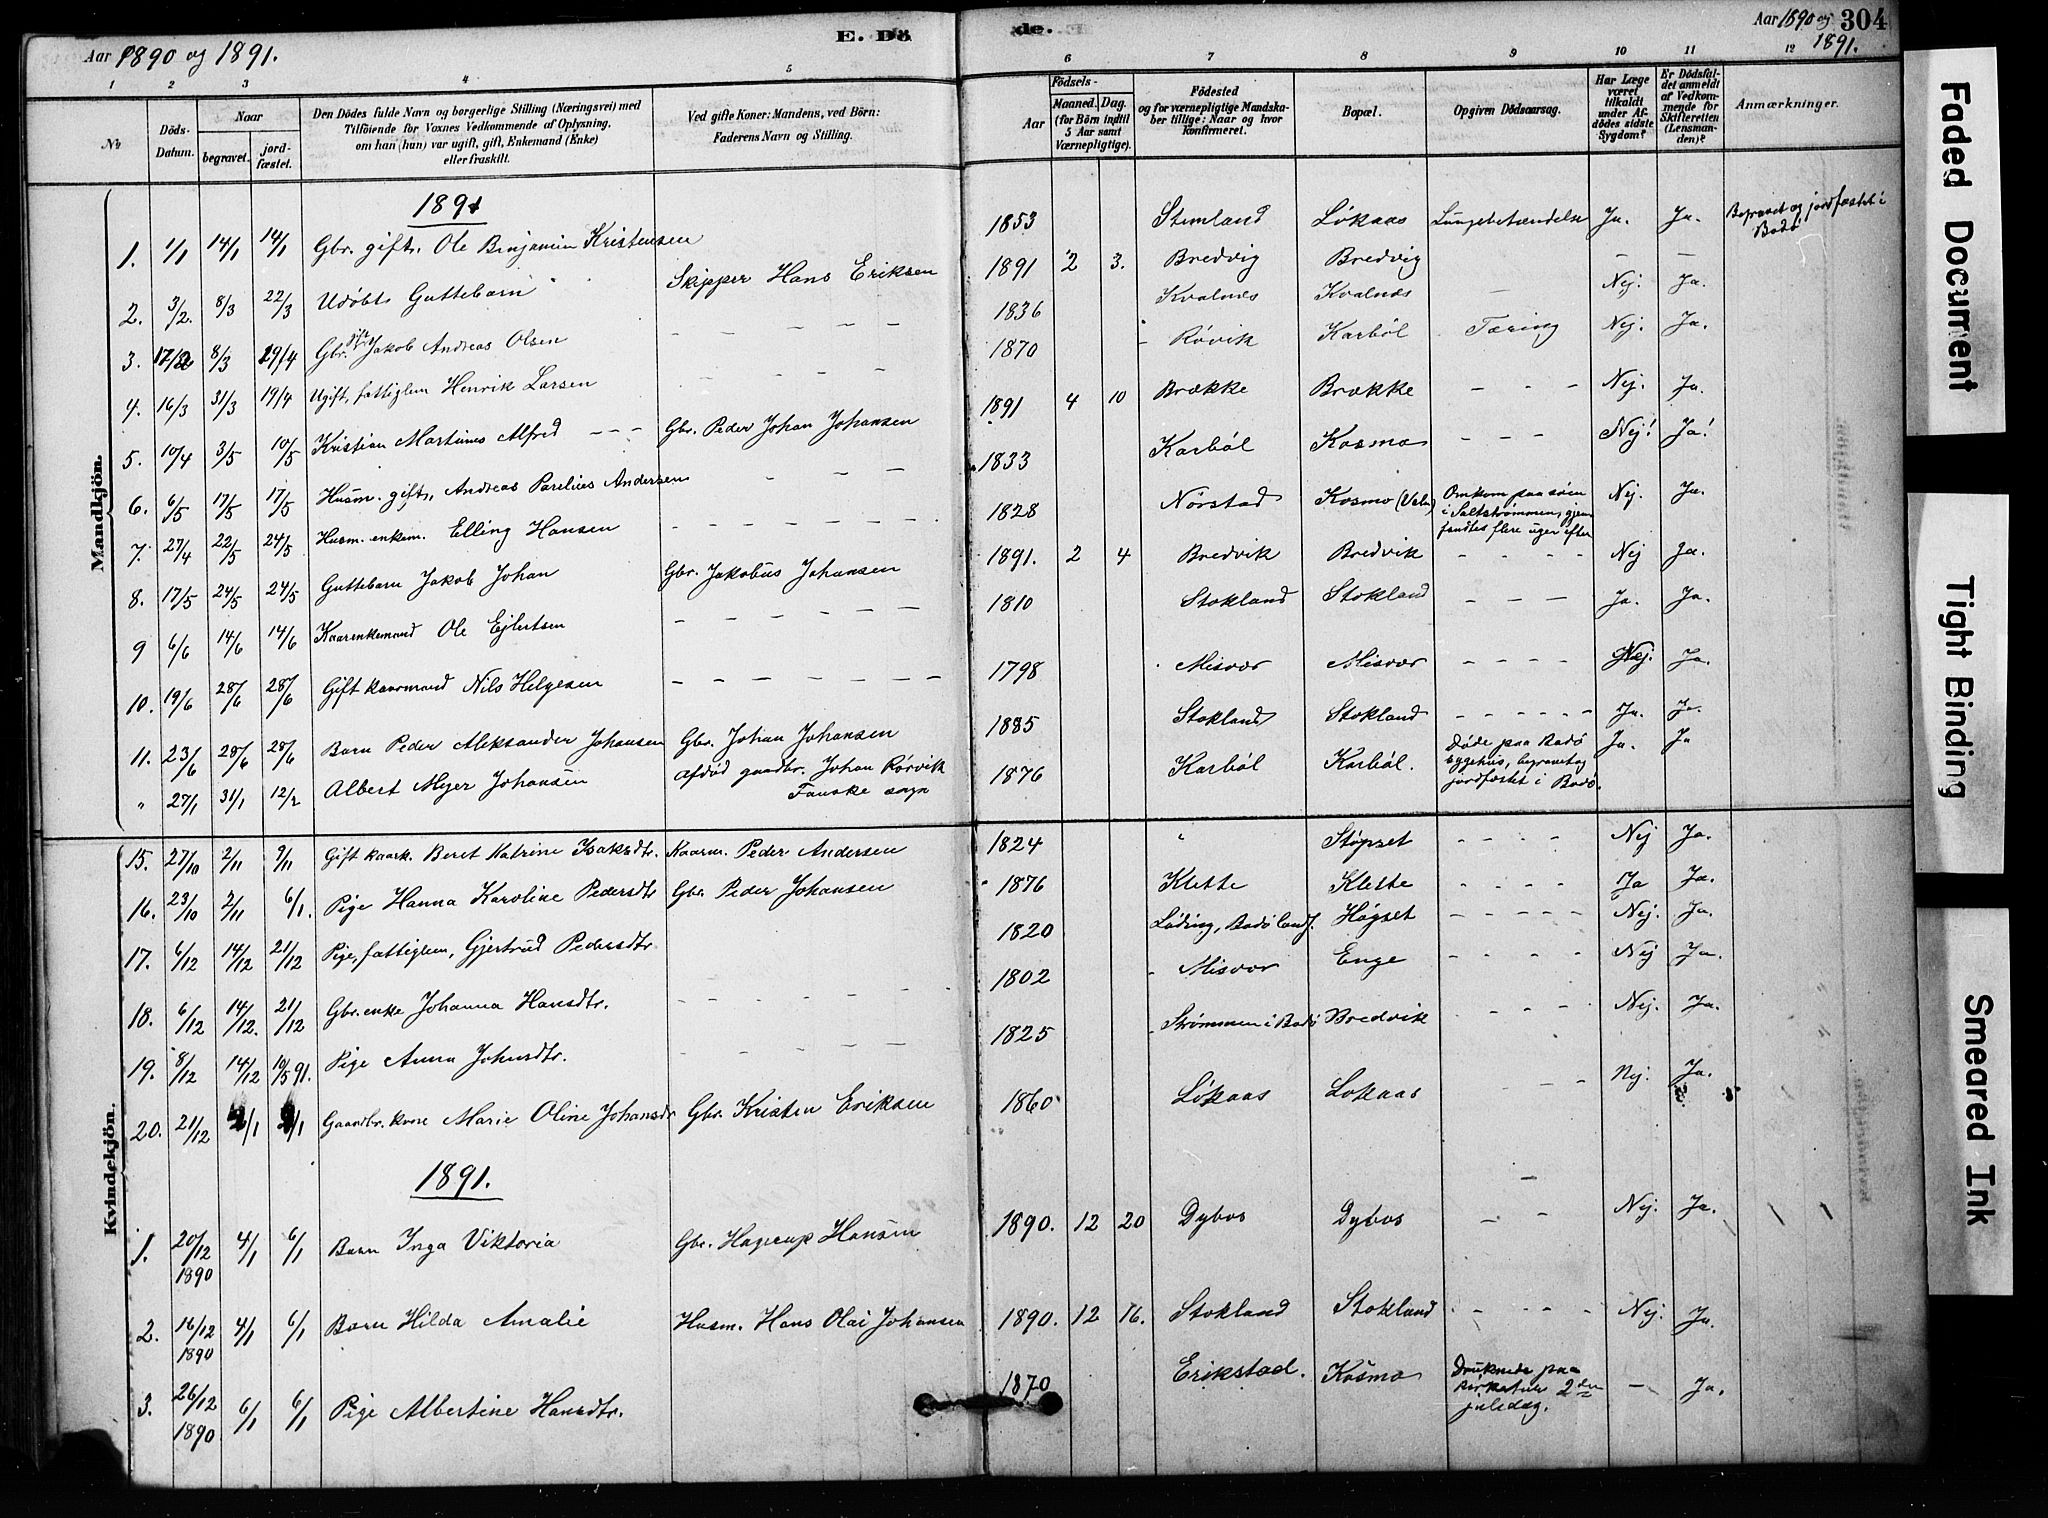 Aar 1890 og 1891.
E. Dö
de.
Aar 1890 og 1891.
304
1 2 3 4 5
6 7 8 9 10 11 12
No
Döds-Datum.
Naar
begravet.
jordfæstet.
Den Dödes fulde Navn og borgerlige Stilling (Næringsvei) med
Tilföiende for Voxnes Vedkommende af Oplysning,
om han (hun) var ugift, gift, Enkemand (Enke)
eller fraskilt.
Ved gifte Koner: Mandens, ved Börn:
Faderens Navn og Stilling.
Födsels-
Aar
Maaned. Dag.
(for Börn indtil
5 Aar samt
Værnepligtige).
Födested
og for værnepligtige Mandska-
ber tillige: Naar og hvor
konfirmeret.
Bopæl.
Opgiven Dödsaarsag.
Har Læge
været
tilkaldt
under Af-
dödes sidste
Sygdom?
Er Dödsfal-
det anmeldt
af Vedkom-
mende for
Skifteretten
(Lensman-
den)?
Anmærkninger.
Mandkjön.
1891
1. 1/1 14/1 14/1 Gbr. gift. Ole Benjamin Kristensen 1853 Stemland Løkaas Lungebetændelse Ja. Ja. Begravet og jordfæstet i Bodø
2. 3/2. 8/3 22/3 Udøbt Guttebarn Skipper Hans Eriksen 1891 2 3. Bredvig Bredvig — —
3. 17/2 8/3 19/4 Gbr. gift Jakob Andreas Olsen – – – – – 1836 Kvalnes Kvalnes – Nej. Ja.
4. 16/3 31/3 19/4 Ugift, fattiglem Henrik Larsen – – – – 1870 Røvik Karbøl Tæring Nej. Ja.
5. 10/4 3/5 10/5 Kristian Martines Alfred – – – Gbr. Peder Johan Johansen 1891 4 10 Brække Brække – – – Nej. Ja.
6. 6/5 17/5 17/5 Husm. gift, Andreas Parelius Andersen – – – 1833 Karbøl Kosmo – – – Nej! Ja!
7. 27/4 22/5 24/5 Husm. enkem. Elling Hansen – – – – – – – 1828 Nørstad Kosmo Omkom paa søen i Saltstrømmen, fandtes flere uger efter Nej. Ja.
8. 17/5 24/5 24/5 Guttebarn Jakob Johan Gbr. Jakobus Johansen 1891. 2 4 Bredvik Bredvik – – – – Nej Ja.
9 6/6 14/6 14/6 Kaarenkemand Ole Ejlertsen – – – – – – 1810 Stokland Stokland – – – Ja. Ja.
10. 19/6 28/6 28/6 Gift kaarmand Nils Helgesen – – – – – – – 1798 Misvær Misvær – – – – Nej. Ja.
11. 23/6 28/6 28/6 Barn Peder Aleksander Johansen Gbr. Johan Johansen 1885 Stokland Stokland – – – – – Ja. Ja.
" 27/1 31/1 12/2 Albert Mejer Johansen afdød gaardbr. Johan Rørvik Fauske sogn 1876 Karbøl Karbøl. Døde paa Bodø sygehus, begravet og jordfæstet i Bodø. Ja. Ja
Kvindekjön.
15. 27/10 2/11 9/11 Gift kaark. Beret Katrine Isaksdtr. Kaarm. Peder Andersen 1824 " Støpset – – – – Nej Ja.
16. 23/10 2/11 6/1. Pige Hanna Karoline Pedersdtr Gbr. Peder Johansen 1876 Klette Klette – – – – Ja Ja.
17. 6/12 14/12 21/12 Pige, fattiglem, Gjertrud Pedersdtr. 1820 Løding, Bodø landf. Høgset – – – – – Nej. Ja.
18. 6/12 14/12. 21/12 Gbr. enke Johanna Hansdtr. – – – – – – 1802 Misvær Enge – – – – Nej Ja.
19. 8/12 14/12 10/5 91. Pige Anna Johnsdtr. – – – – – 1825 Strømmen i Bodø Bredvik – – – – Nej. Ja.
20. 21/12 4/1 6/1 Gaardbr. kone Marie Oline Johansdr Gbr. Kristen Eriksen 1860 Løkaas Lokaas – – – Nej. Ja.
1891.
1. 20/12 1890 4/1 6/1 Barn Inga Viktoria Gbr. Hagerup Hansen 1890. 12 20 Dybos Dybos – – Nej. Ja.
2. 16/12 1890 4/1 6/1 Barn Hilda Amalie Husm. Hans Olai Johansen 1890. 12 16. Stokland Stokland – – – – Nej. Ja.
3. 26/12 1890 6/1 6/1 Pige Albertine Hansdtr. 1870 Erikstad. Kosmo Druknede paa 2den juledag. – Ja.
Faded Document
Tight Binding
Smeared Ink